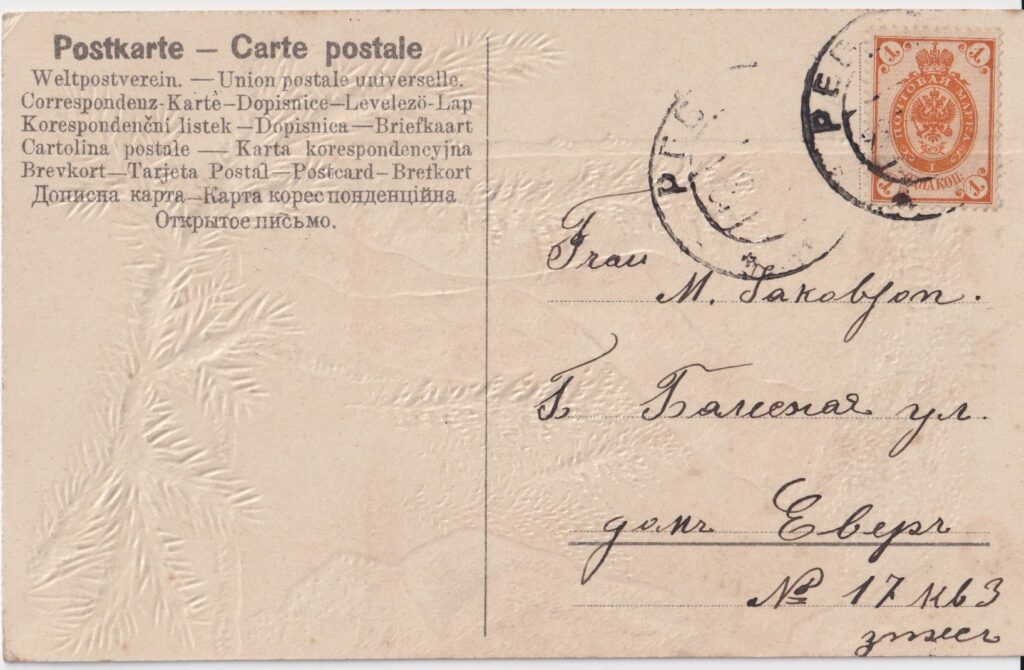 Postkarte – Carte postale
Weltpostverein. — Union postale universelle.
Correspondenz-Karte–Dopisnice–Levelező-Lap
Korespondenční listek–Dopisnica–Briefkaart
Cartolina postale — Karta korespondencyjna
Brevkort—Tarjeta Postal—Postcard–Brefkort
Дописна карта–Карта кореспонденційна
Открытое письмо.
1 1
ПОЧТОВАЯ МАРКА
1 1
РЕВ
Frau
M. Jakobson.
Б ул.
домъ Еверъ
№ 17 кв 3